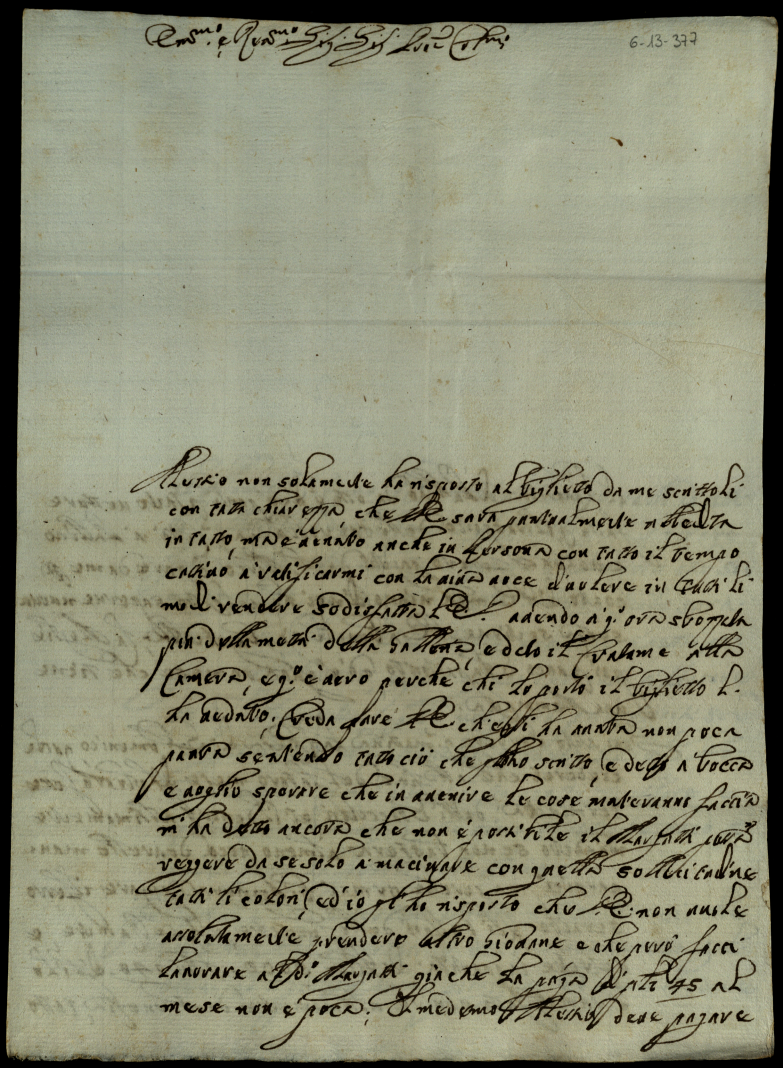 Em.mo e Rev.mo Sig. Sig. Pron Col.mo
6-13-377
Alessio non solamente ha risposto al biglietto da me scrittoli
con tutta chiarezza, che VE sarà puntualmente ubbedita
in tutto, ma è venuto anche in Persona con tutto il tempo
cattivo à ratificarmi con la viva voce d'avere in tutti li
modi rendere sodisfatta VE. avendo a q.st'ora sbozzata
più della metà della
Camera, e q.o è vero perche chi li portò il biglietto l'
ha veduto. Creda pure VE che li ha avuta non poca
paura sentendo tutto ciò che gl'ho scritto, e detto a bocca
e voglio sperare che in avenire le cose muteranno faccia
m'ha detto ancora che non è possibile il Margutti possa
reggere da se solo a macinare con quella sollecitudine
tutti li colori, ed io gl'ho risposto che VE. non vuole
assolutamente prendere altro Giovane e che però facci
lavorare al d.o Margutti già che la paga di 45 al
mese non è poca. Il medemo Alessio deve pagare